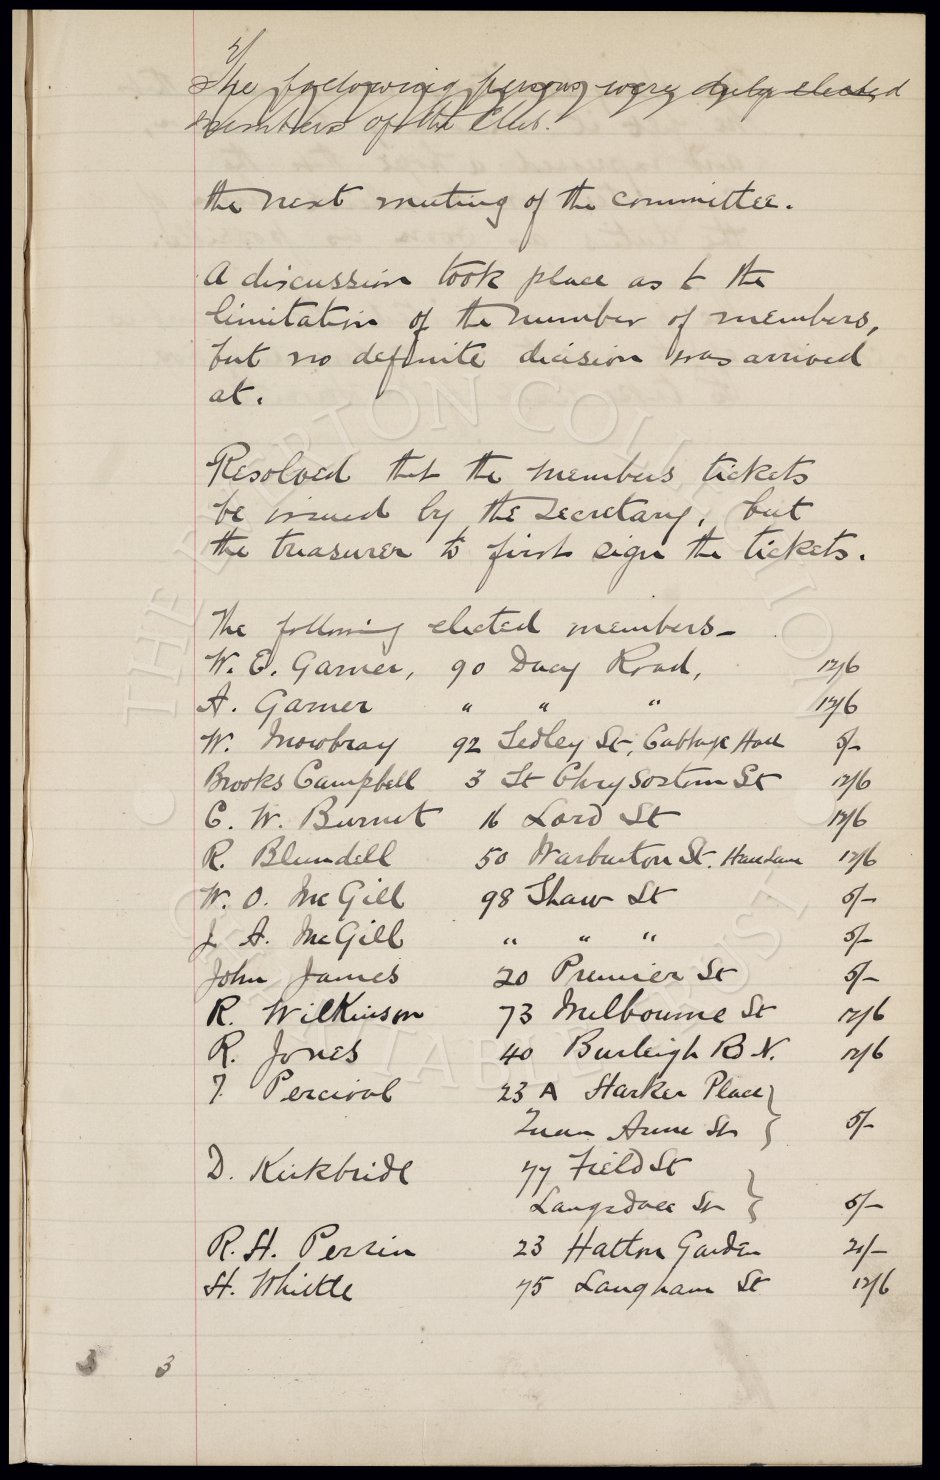 The following persons were duly elected
members of the Club.
the next meeting of the committee.
A discussion took place as to the
limitation of the number of members,
but no definite decision was arrived
at.
Resolved that the members tickets
be issued by the secretary, but
the treasurer to first sign the tickets.
The following elected members —
W. E. Garner, 90 Dacy Road, 12/6
A. Garner " " " 12/6
W. Mowbray 92 Sedley St, Cabbage Hall 5/-
Brooks Campbell 3 St Chrysostom St 12/6
C. W. Burnet 16 Lord St 12/6
R. Blundell 50 Warburton St. Hall Lane 12/6
W. O. McGill 98 Shaw St 5/-
J. A. McGill " " " 5/-
John James 20 Premier St 5/-
R. Wilkinson 73 Melbourne St 12/6
R. Jones 40 Burleigh Rd N. 12/6
T. Percival 23 A Starker Place }
Queen Anne St } 5/-
D. Kirkbride 77 Field St
Langsdale St } 5/-
R. H. Perrin 23 Hatton Garden 21/-
H. Whittle 75 Langham St 12/6
3 3
THE EVERTON COLLECTION
CHARITABLE TRUST